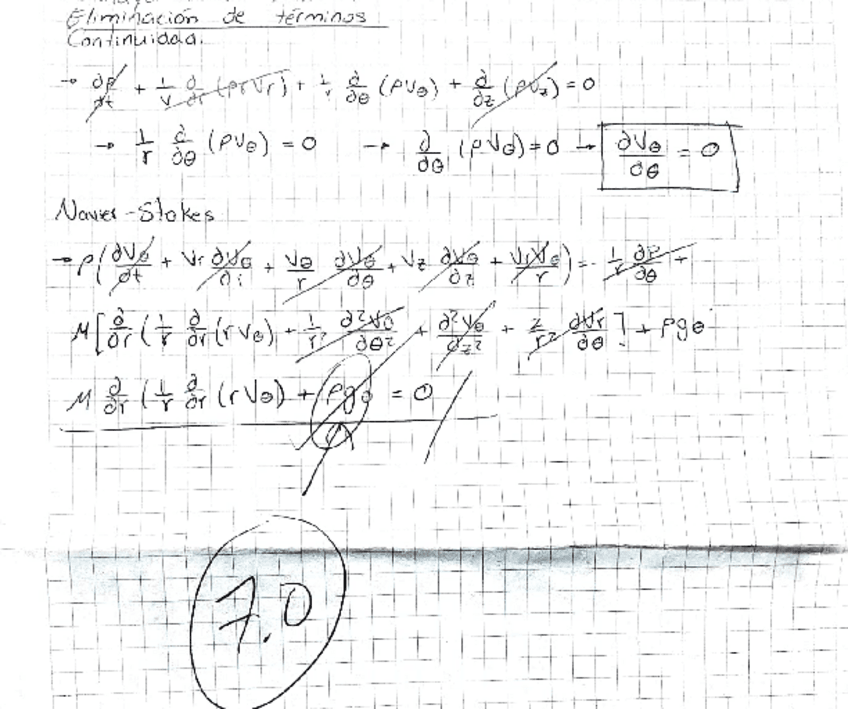 Eliminación de términos
Continuidad.
→ ∂ρ/∂t + 1/r ∂/∂r (ρrVr) + 1/r ∂/∂θ (ρVθ) + ∂/∂z (ρVz) = 0
→ 1/r ∂/∂θ (ρVθ) = 0 → ∂/∂θ (ρVθ) = 0 ↳ ∂Vθ/∂θ = 0
Navier-Stokes
→ ρ(∂Vθ/∂t + Vr ∂Vθ/∂r + Vθ/r ∂Vθ/∂θ + Vz ∂Vθ/∂z + VrVθ/r) = - 1/r ∂P/∂θ +
μ[∂/∂r (1/r ∂/∂r (rVθ) + 1/r² ∂²Vθ/∂θ² + ∂²Vθ/∂z² + 2/r² ∂Vr/∂θ] + ρgθ
μ ∂/∂r (1/r ∂/∂r (rVθ) + ρgθ = 0
7.0